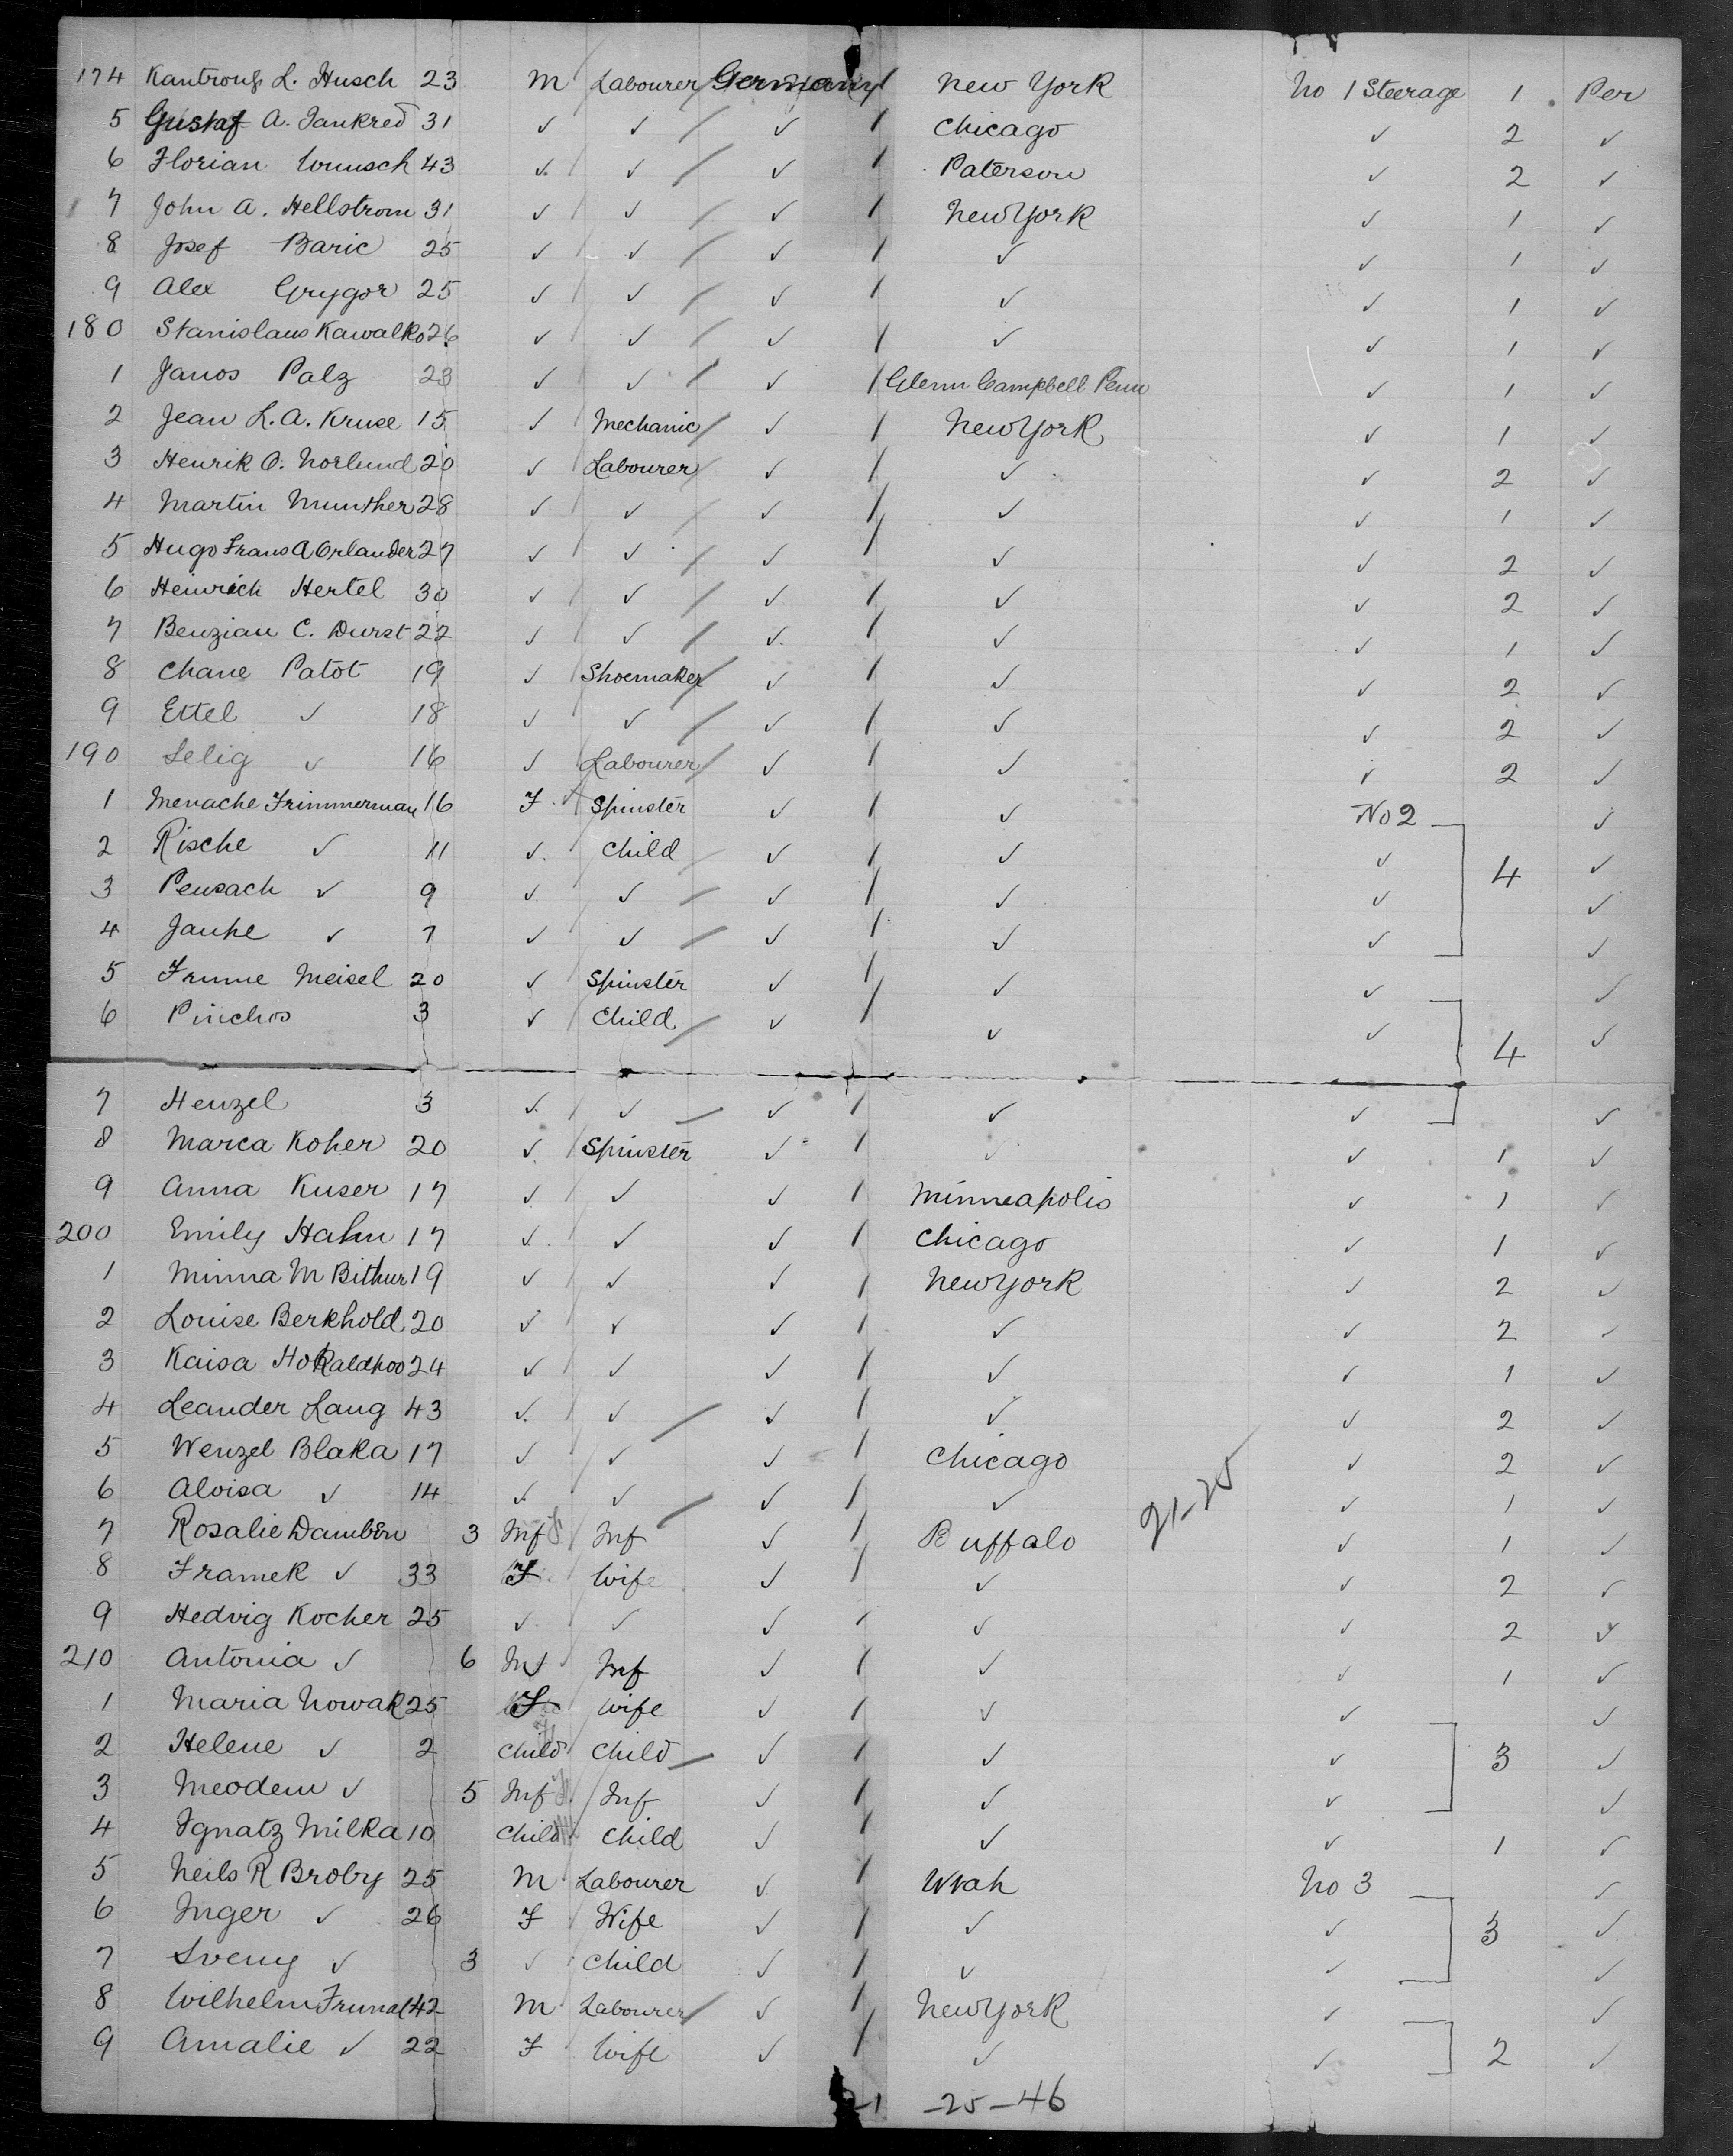 174 Kantrous L. Husch 23 M Labourer Germany New York No 1 Steerage 1 Per
5 Gustaf A. Tankred 31 ✓ ✓ ✓ Chicago ✓ 2 ✓
6 Florian Wunsch 43 ✓ ✓ ✓ Paterson ✓ 2 ✓
7 John A. Hellstrom 31 ✓ ✓ ✓ New York ✓ 1 ✓
8 Josef Baric 25 ✓ ✓ ✓ ✓ ✓ 1 ✓
9 Alex Grygor 25 ✓ ✓ ✓ ✓ ✓ 1 ✓
180 Stanislaus Kawalko 26 ✓ ✓ ✓ ✓ ✓ 1 ✓
1 Janos Palz 23 ✓ ✓ ✓ Glenn Campbell Penn ✓ 1 ✓
2 Jean L. A. Kruse 15 ✓ Mechanic ✓ New York ✓ 1 ✓
3 Henrik O. Norlund 20 ✓ Labourer ✓ ✓ ✓ 2 ✓
4 Martin Munther 28 ✓ ✓ ✓ ✓ ✓ 1 ✓
5 Hugo Frans A Orlander 27 ✓ ✓ ✓ ✓ ✓ 2 ✓
6 Heinrich Hertel 30 ✓ ✓ ✓ ✓ ✓ 2 ✓
7 Benzian C. Durst 22 ✓ ✓ ✓ ✓ ✓ 1 ✓
8 Chane Patot 19 ✓ Shoemaker ✓ ✓ ✓ 2 ✓
9 Ettel ✓ 18 ✓ ✓ ✓ ✓ ✓ 2 ✓
190 Selig ✓ 16 ✓ Labourer ✓ ✓ ✓ 2 ✓
1 Menache Frimmerman 16 F Spinster ✓ ✓ No 2 ✓
2 Rische ✓ 11 ✓ Child ✓ ✓ ✓ 4 ✓
3 Pensach ✓ 9 ✓ ✓ ✓ ✓ ✓ ✓
4 Janhe ✓ 7 ✓ ✓ ✓ ✓ ✓ ✓
5 Frume Meisel 20 ✓ Spinster ✓ ✓ ✓ ✓
6 Pinchos 3 ✓ Child ✓ ✓ ✓ 4 ✓
7 Henzel 3 ✓ ✓ ✓ ✓ ✓ ✓
8 Marca Koher 20 ✓ Spinster ✓ ✓ ✓ 1 ✓
9 Anna Kuser 17 ✓ ✓ ✓ Minneapolis ✓ 1 ✓
200 Emily Hahn 17 ✓ ✓ ✓ Chicago ✓ 1 ✓
1 Minna M Bithur 19 ✓ ✓ ✓ New York ✓ 2 ✓
2 Louise Berkhold 20 ✓ ✓ ✓ ✓ ✓ 2 ✓
3 Kaisa Hokaldhoo 24 ✓ ✓ ✓ ✓ ✓ 1 ✓
4 Leander Laug 43 ✓ ✓ ✓ ✓ ✓ 2 ✓
5 Wenzel Blaka 17 ✓ ✓ ✓ Chicago ✓ 2 ✓
6 Aloisa ✓ 14 ✓ ✓ ✓ ✓ 21-25 ✓ 1 ✓
7 Rosalie Dambin 3 Inf Inf ✓ Buffalo ✓ 1 ✓
8 Framek ✓ 33 F Wife ✓ ✓ ✓ 2 ✓
9 Hedvig Kocher 25 ✓ ✓ ✓ ✓ ✓ 2 ✓
210 Antonia ✓ 6 Inf Inf ✓ ✓ ✓ 1 ✓
1 Maria Nowak 25 F Wife ✓ ✓ ✓ ✓
2 Helene ✓ 2 Child Child ✓ ✓ ✓ 3 ✓
3 Meodem ✓ 5 Inf Inf ✓ ✓ ✓ ✓
4 Ignatz Milka 10 Child Child ✓ ✓ ✓ 1 ✓
5 Neils R Broby 25 M Labourer ✓ Utah No 3 ✓
6 Inger ✓ 26 F Wife ✓ ✓ ✓ 3 ✓
7 Sveny ✓ 3 ✓ Child ✓ ✓ ✓ ✓
8 Wilhelm 42 M Labourer ✓ New York ✓ ✓
9 Amalie ✓ 22 F Wife ✓ ✓ ✓ 2 ✓
21 -25-46